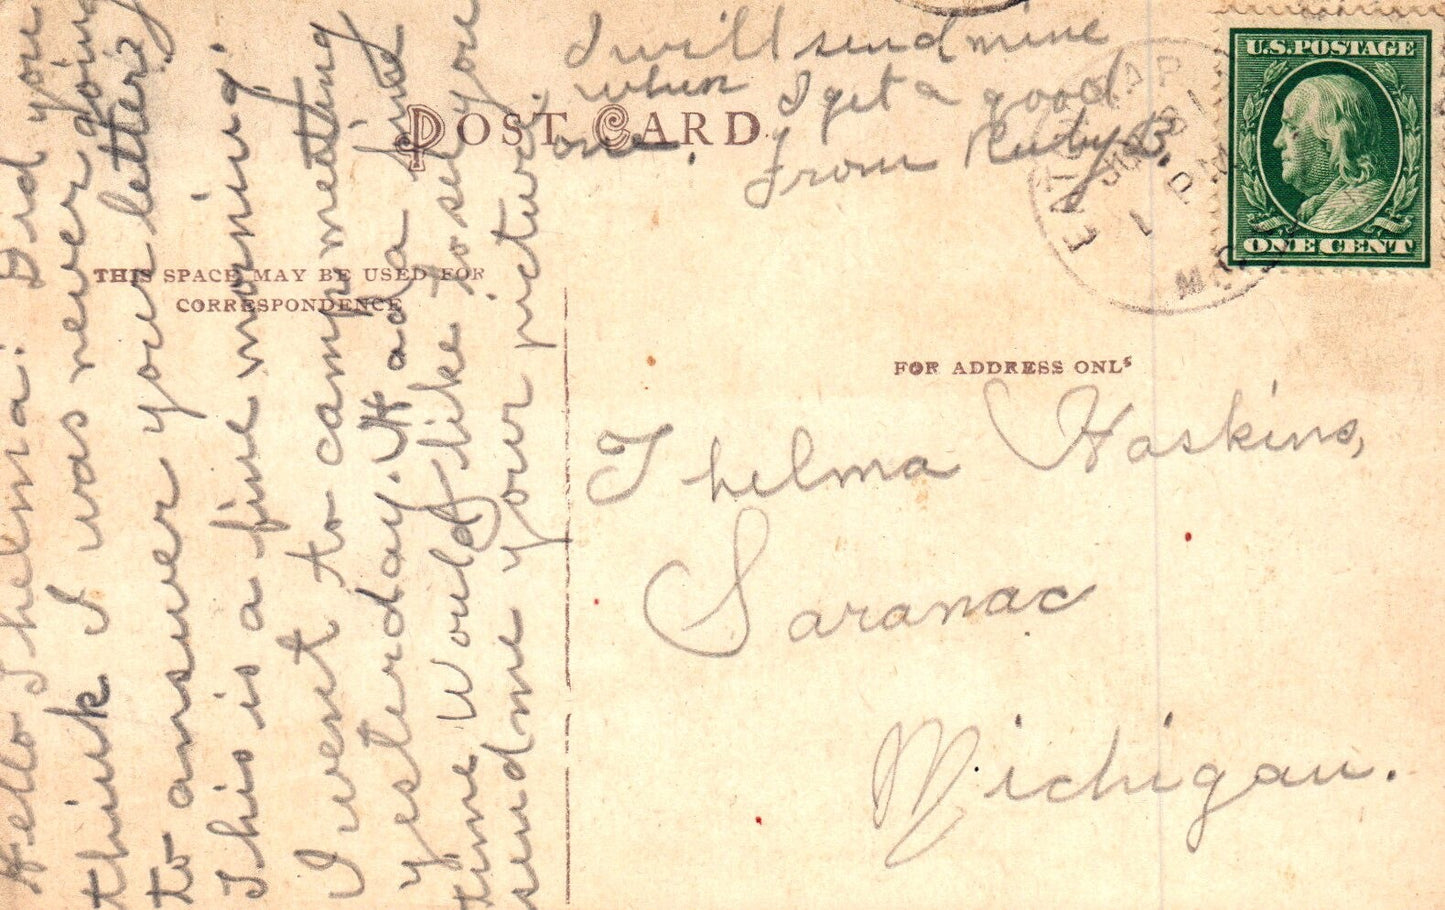 Hello Thelma! Did you
think I was never going
to answer your letter?
This is a fine morning.
I went to camp meeting
yesterday. Had a fine
time Would like to sel you
send me your picture,
I will send mine
when I get a good
one.
From Ruby B.
POST CARD
THIS SPACE MAY BE USED FOR
CORRESPONDENCE
FOR ADDRESS ONLY
U.S. POSTAGE
ONE CENT
1 PM
MICH.
Thelma Haskins,
Saranac
Michigan.